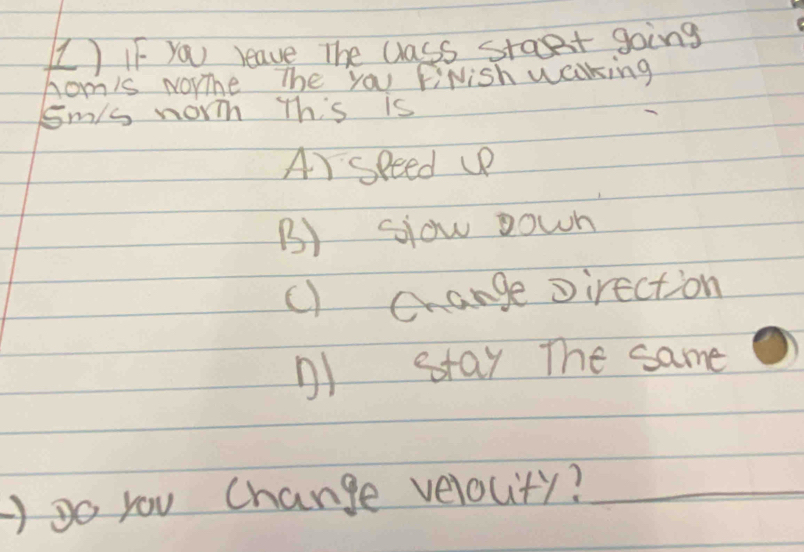 1) IF You leave The Class Start going
hom/s Northe The You Finish walking
5m/s north This is
A) Speed up
B) Slow Down
C) Change Direction
D) Stay The Same
-) Do you Change velocity?